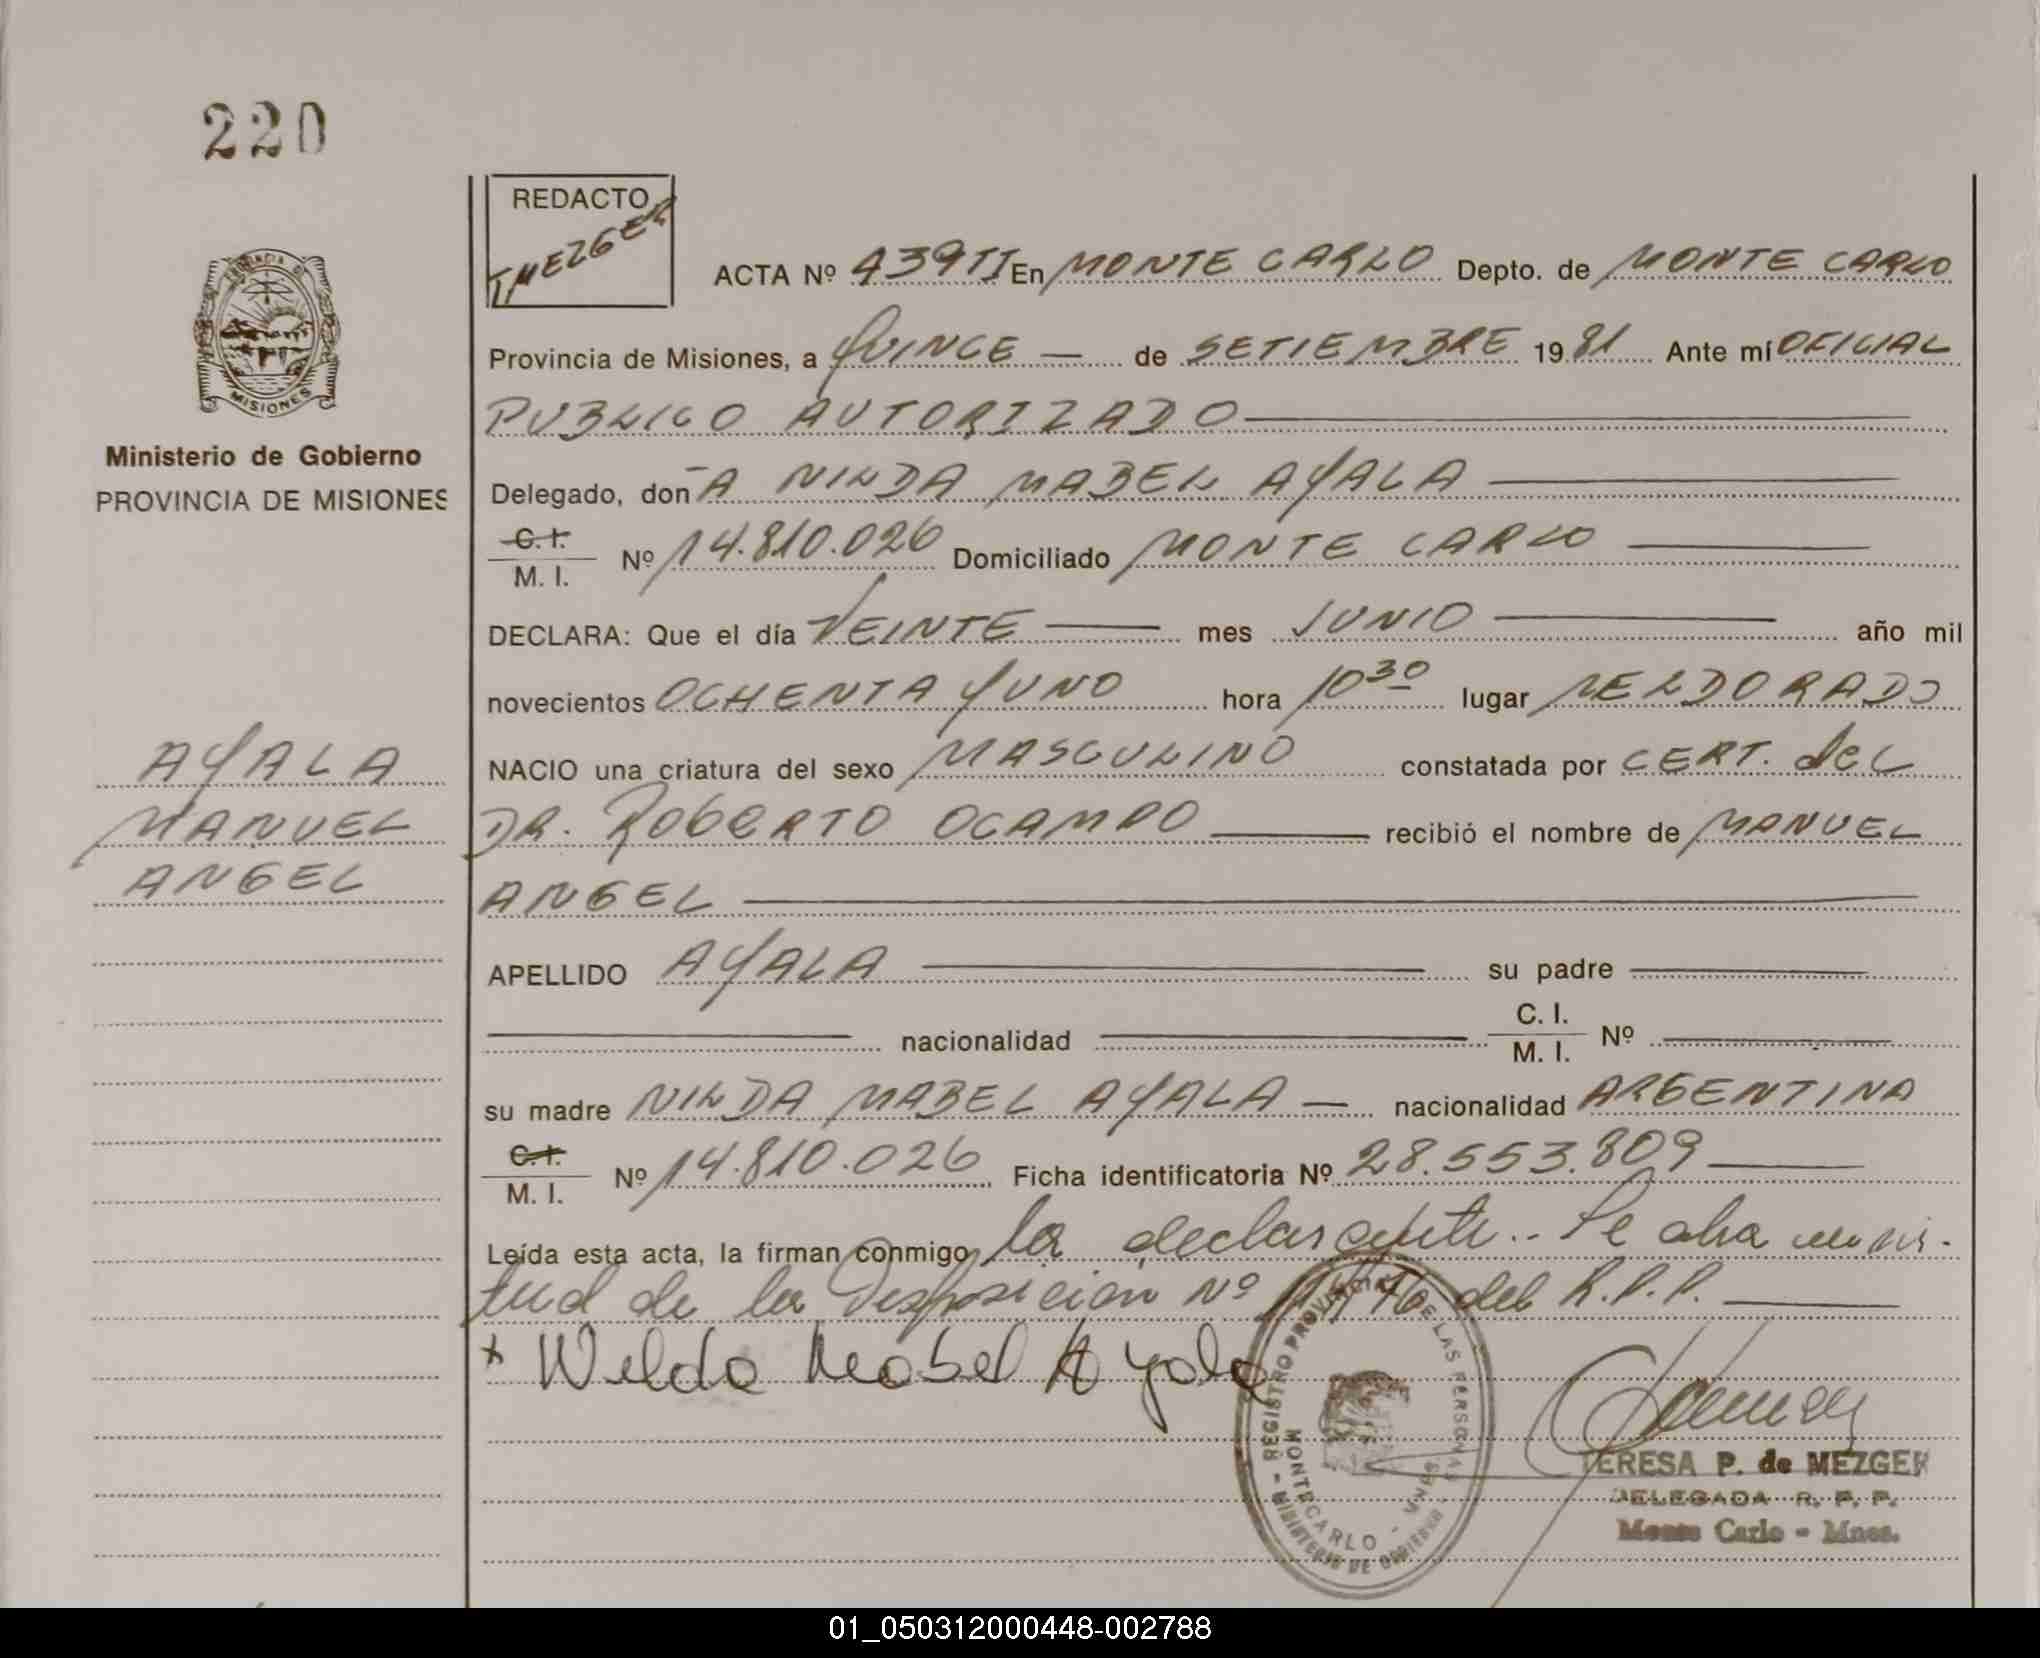 220
REDACTO
TMEZGER
ACTA Nº 439TI En MONTE CARLO Depto. de MONTE CARLO
Provincia de Misiones, a QUINCE — de SETIEMBRE 1981 Ante mí OFICIAL
PUBLICO AUTORIZADO
Ministerio de Gobierno
PROVINCIA DE MISIONES
Delegado, don̄A NILDA MABEL AYALA
C. I. / M. I. Nº 14.810.026 Domiciliado MONTE CARLO
DECLARA: Que el día VEINTE — mes JUNIO — año mil
novecientos OCHENTA YUNO hora 10 30 lugar ELDORADO
NACIO una criatura del sexo MASCULINO constatada por CERT. del
DR. ROBERTO OCAMPO — recibió el nombre de MANUEL
ANGEL
AYALA
MANUEL
ANGEL
APELLIDO AYALA — su padre —
— nacionalidad — C. I. / M. I. Nº —
su madre NILDA MABEL AYALA — nacionalidad ARGENTINA
C. I. / M. I. Nº 14.810.026 Ficha identificatoria Nº 28.553.809
Leída esta acta, la firman conmigo, la declarante.. Se aha en vir-
tud de la Disposicion Nº /76 del R.P.P.
x Nilda Mabel Ayala
REGISTRO PROVINCIAL DE LAS PERSONAS
MONTECARLO - MNES.
MINISTERIO DE GOBIERNO
TERESA P. de MEZGER
DELEGADA R. P. P.
Monte Carlo - Mnes.
MISIONES
01_050312000448-002788